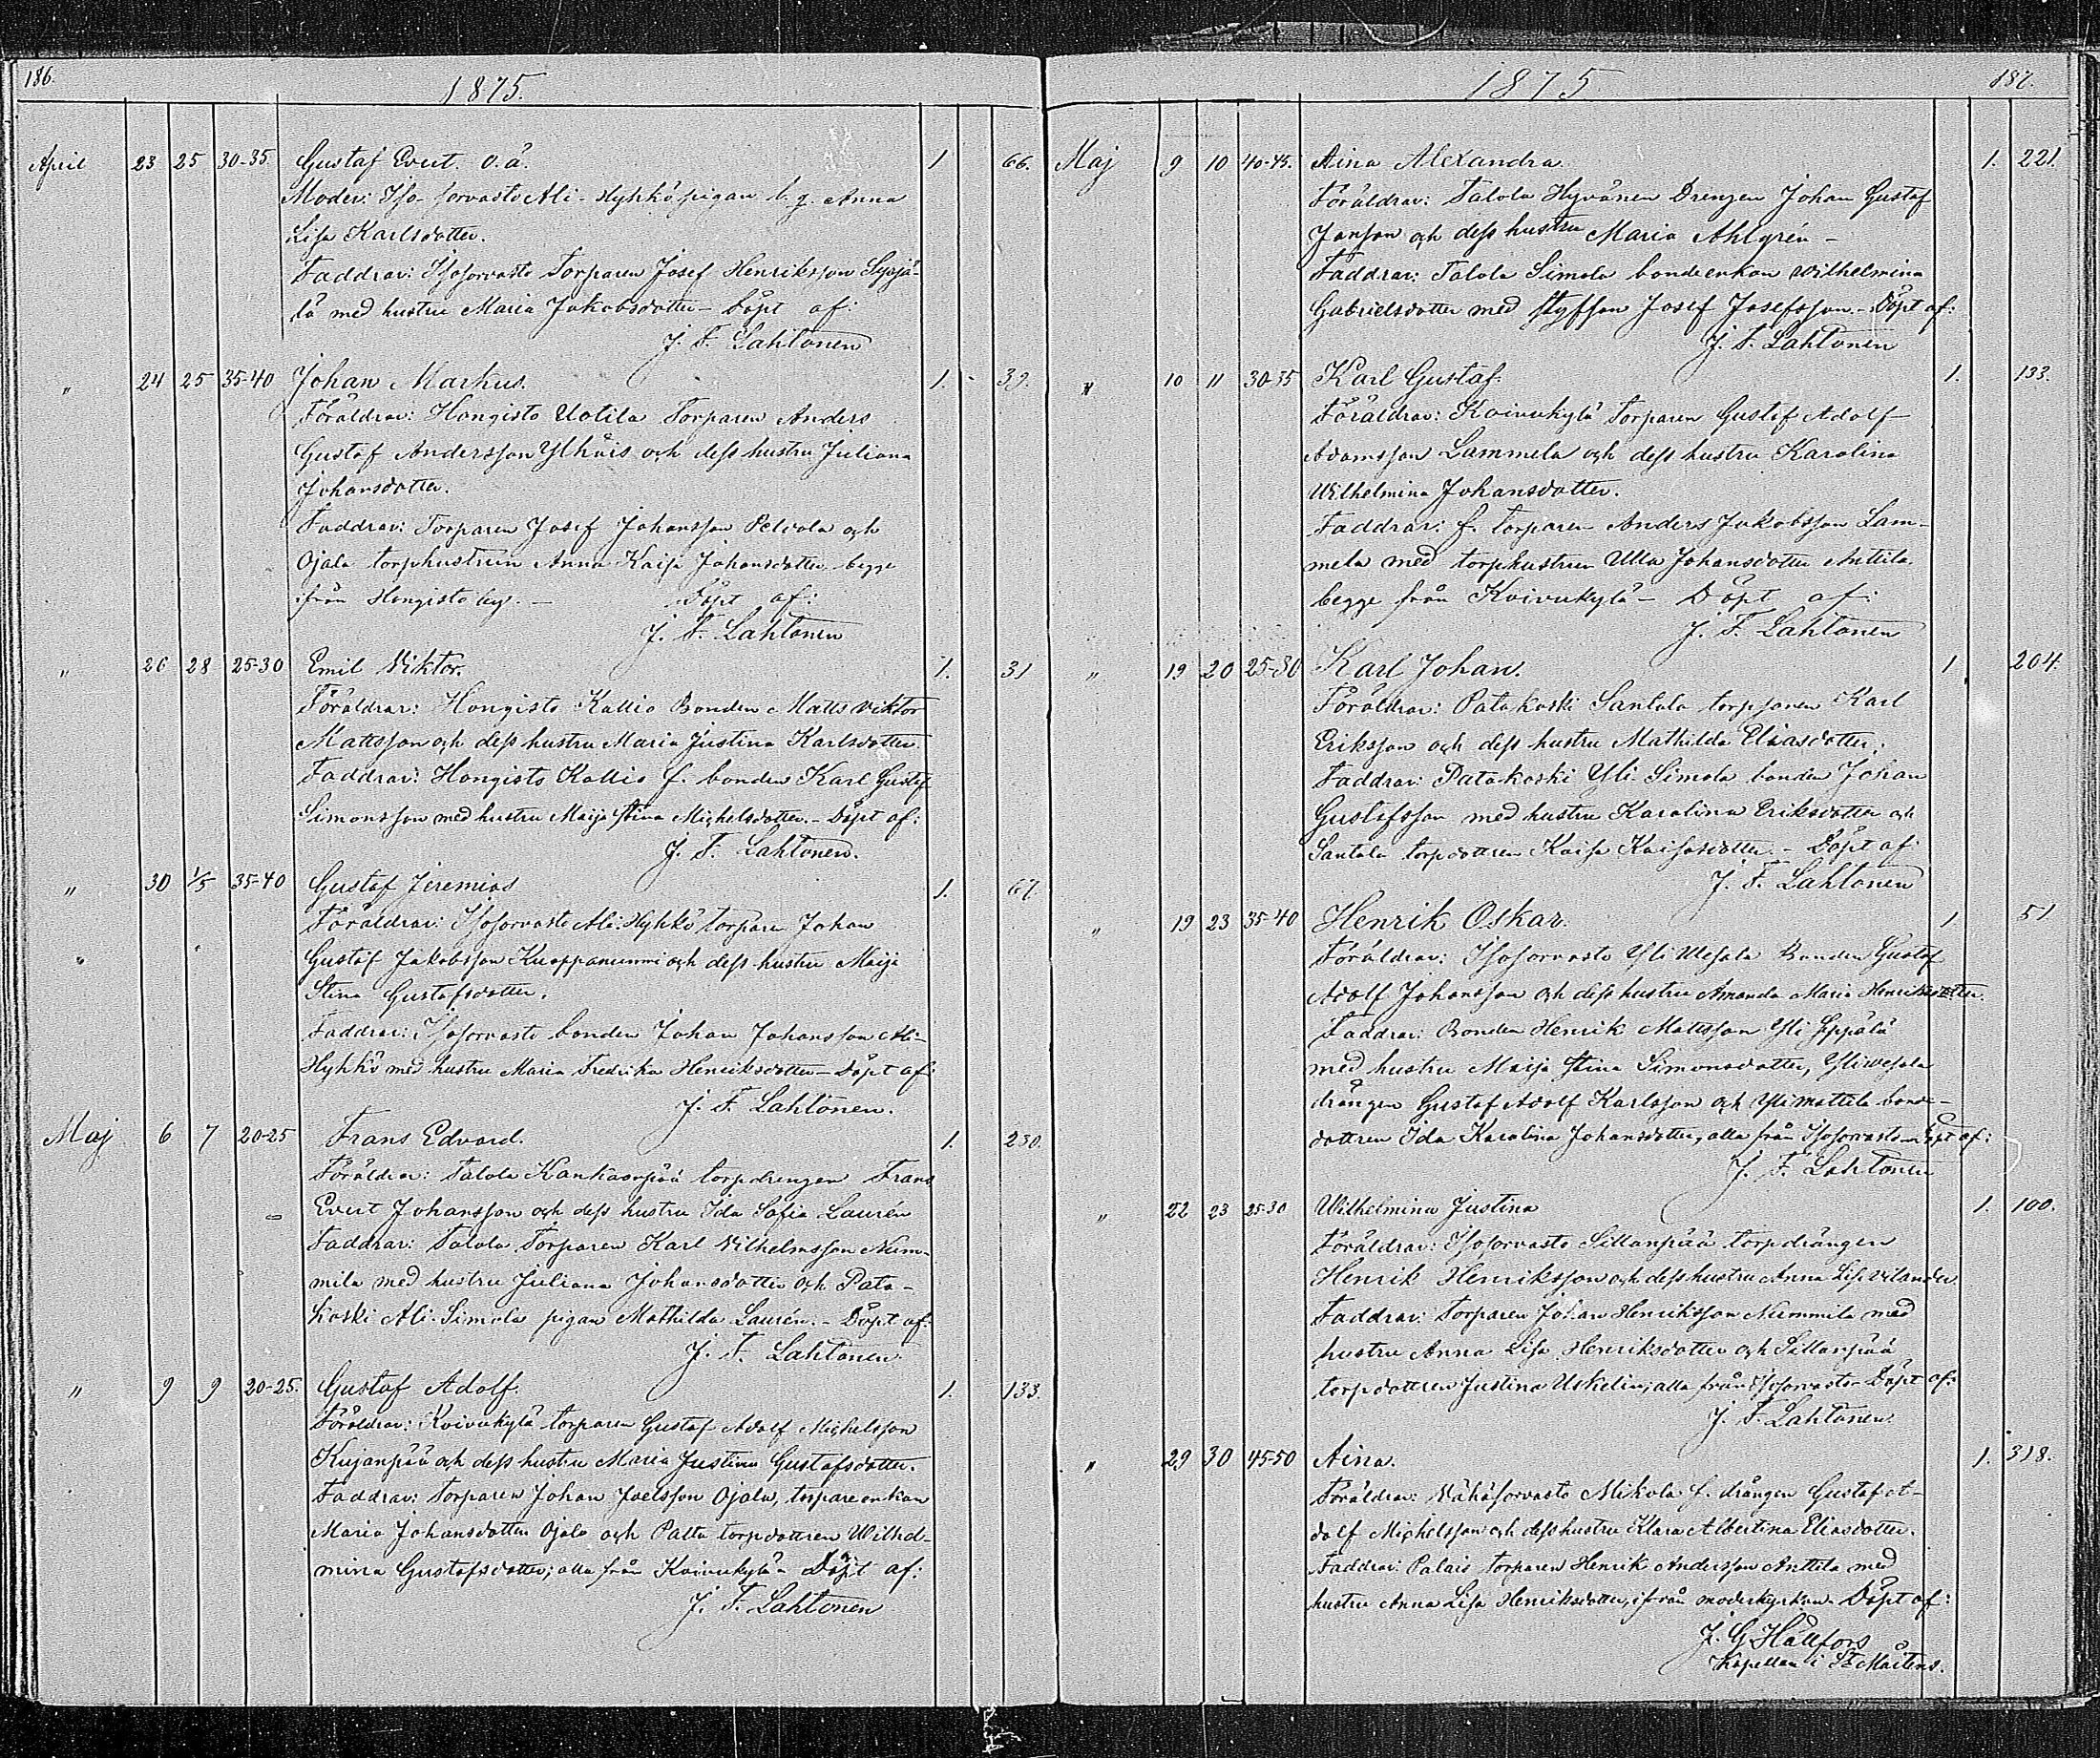 186.
1875.
April 23 25 30-35 Gustaf Evert. o.ä. 1 66.
Moder: Isosorvasto Ali-Hyhkö pigan b. g. Anna
Lisa Karlsdotter.
Faddrar: Isosorvasto Torparen Josef Henriksson Syrjä-
lä med hustru Maria Jakobsdotter – Döpt af:
J. F. Lahtonen
" 24 25 35-40 Johan Markus. 1. 39.
Föräldrar: Hongisto Uotila Torparen Anders
Gustaf Andersson Ylhäis och dess hustru Juliana
Johansdotter.
Faddrar: Torparen Josef Johansson Peltola och
Ojala torphustrun Anna Kaisa Johansdotter begge
ifrån Hongisto by. – Döpt af:
J. F. Lahtonen
" 26 28 25-30 Emil Viktor. 1. 31
Föräldrar: Hongisto Kallio Bonden Matts Viktor
Mattsson och dess hustru Maria Justina Karlsdotter
Faddrar: Hongisto Kallio f. bonden Karl Gustaf
Simonsson med hustru Maija Stina Michelsdotter. – Döpt af:
J. F. Lahtonen.
" 30 1/5 35-40 Gustaf Jeremias 1. 67.
Föräldrar: Isosorvasto Ali-Hyhkö torparen Johan
Gustaf Jakobsson Kuoppanummi och dess hustru Maija
Stina Gustafsdotter.
Faddrar: Isosorvasto bonden Johan Johansson Ali-
Hyhkö med hustru Maria Fredrika Henriksdotter – Döpt af:
J. F. Lahtonen.
Maj 6 7 20-25 Frans Edvard. 1. 230.
Föräldrar: Talola Kankaanpää torpdrengen Frans
Evert Johansson och dess hustru Ida Sofia Laurén
Faddrar: Talola Torparen Karl Vilhelmsson Num-
mila med hustru Juliana Johansdotter och Pata-
koski Ali-Simola pigan Mathilda Laurén. – Döpt af:
J. F. Lahtonen
" 9 9 20-25. Gustaf Adolf. 1. 133.
Föräldrar: Koivukylä torparen Gustaf Adolf Michelsson
Kujanpää och dess hustru Maria Justina Gustafsdotter.
Faddrar: torparen Johan Joelsson Ojala, torpareenkan
Maria Johansdotter Ojala och Palta torpdottren Wilhel-
mina Gustafsdotter; alla från Koivukylä – Döpt af:
J. F. Lahtonen
1875
187.
Maj 9 10 40-45. Aina Alexandra. 1. 221.
Föräldrar: Talola Hyvänen Drengen Johan Gustaf
Janson och dess hustru Maria Ahlgrén –
Faddrar: Talola Simola bondeenkan Wilhelmina
Gabrielsdotter med styfson Josef Josefsson. – Döpt af:
J. F. Lahtonen
" 10 11 30-35 Karl Gustaf. 1. 133.
Föräldrar: Koivukylä Torparen Gustaf Adolf
Adamsson Lammela och dess hustru Karolina
Wilhelmina Johansdotter.
Faddrar: f. torparen Anders Jakobsson Lam-
mela med torphustrun Ulla Johansdotter Anttila
begge från Koivukylä – Döpt af:
J. F. Lahtonen
" 19 20 25-30 Karl Johan. 1 204.
Föräldrar: Patakoski Santala torpsonen Karl
Eriksson och dess hustru Mathilda Eliasdotter.
Faddrar: Patakoski Yli Simola bonden Johan
Gustafsson med hustru Karolina Eriksdotter och
Santala torpdottren Kaisa Kaisasdotter. – Döpt af
J. F. Lahtonen
" 19 23 35-40 Henrik Oskar. 1. 51
Föräldrar: Isosorvasto Yli Wesala Bonden Gustaf
Adolf Johansson och dess hustru Amanda Maria Henriksdotter.
Faddrar: Bonden Henrik Mattsson Yli Eppälä
med hustru Maija Stina Simonsdotter, Yliwesala
drängen Gustaf Adolf Karlsson och Ylimattila bonde-
dottren Ida Karolina Johansdotter, alla från Isosorvasto – Döpt af:
J. F. Lahtonen
" 22 23 25-30 Wilhelmina Justina 1. 100.
Föräldrar: Isosorvasto Sillanpää torpdrängen
Henrik Henriksson och dess hustru Anna Lisa Vilander.
Faddrar: Torparen Johan Henriksson Nummila med
hustru Anna Lisa Henriksdotter och Sillanpää
torpdottren Justina Uskelin; alla från Isosorvasto – Döpt af:
J. F. Lahtonen.
" 29 30 45-50 Aina. 1. 318.
Föräldrar: Vähäsorvasto Mikola f. drängen Gustaf A-
dolf Michelsson och dess hustru Klara Albertina Eliasdotter.
Faddrar: Palais torparen Henrik Andersson Anttila med
hustru Anna Lisa Henriksdotter, ifrån moderkyrkan. Döpt af:
J. G. Hällfors
Kapellan i St Mårtens.